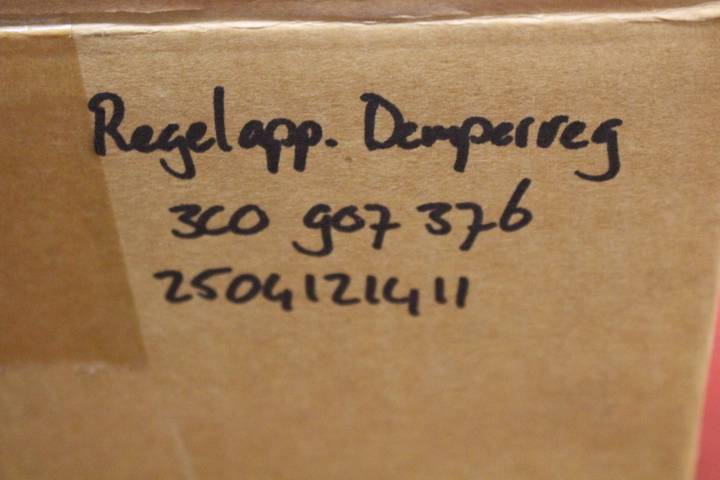 Regelapp. Demperreg
3C0 907 376
2504121411